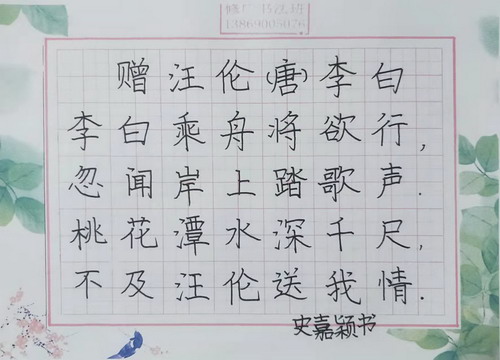 书法班
赠汪伦(唐)李白
李白乘舟将欲行,
忽闻岸上踏歌声.
桃花潭水深千尺,
不及汪伦送我情.
史嘉颖书